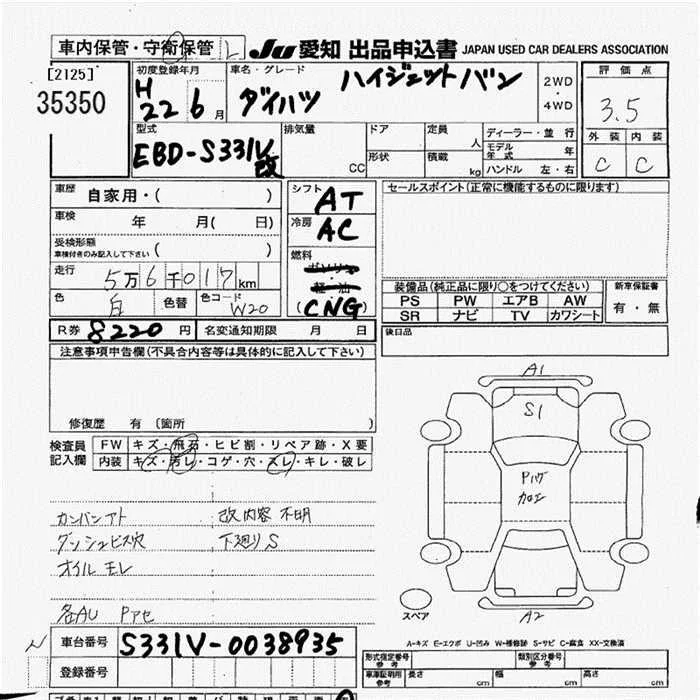 車内保管・守衛保管 L JU 愛知 出品申込書 JAPAN USED CAR DEALERS ASSOCIATION
[2125] 初度登録年月 車名・グレード 2WD ・ 4WD 評価点
35350 H 22 6月 ダイハツ ハイジェットバン 3.5
型式 排気量 ドア 定員 人 ディーラー・並行 外装 内装
EBD-S331V改 CC 形状 積載 kg モデル年式 年 C C
ハンドル 左・右
車歴 自家用・( ) シフト AT セールスポイント(正常に機能するものに限ります)
車検 年 月( 日) 冷房 AC
受検形態 車検付きのみ記入して下さい ( ) 燃料 ガソリン・軽・油
走行 5万6千017km (CNG) 装備品(純正品に限り○をつけてください) 新車保証書
色 白 色替 色コード W20 PS PW エアB AW 有・無
SR ナビ TV カワシート
R券 8220円 名変通知期限 月 日 後日品
注意事項申告欄(不具合内容等は具体的に記入して下さい)
修復歴 有 〔箇所 )
検査員記入欄 FW キズ・飛石・ヒビ割・リペア跡・X要
内装 キズ・汚レ・コゲ・穴・スレ・キレ・破レ
A1
S1
Pハゲ
加エ
カンバンアト 改内容不明
ダッシュビス穴 下廻りS
オイルモレ
各AU Pアセ
スペア A2
A-キズ E-エクボ U-凹み W-補修跡 S-サビ C-腐食 XX-交換済
車台番号 S331V-0038935
登録番号
形式指定番号 参考 類別区分番号 参考
車庫証明用 参考 長さ cm 幅 cm 高さ cm